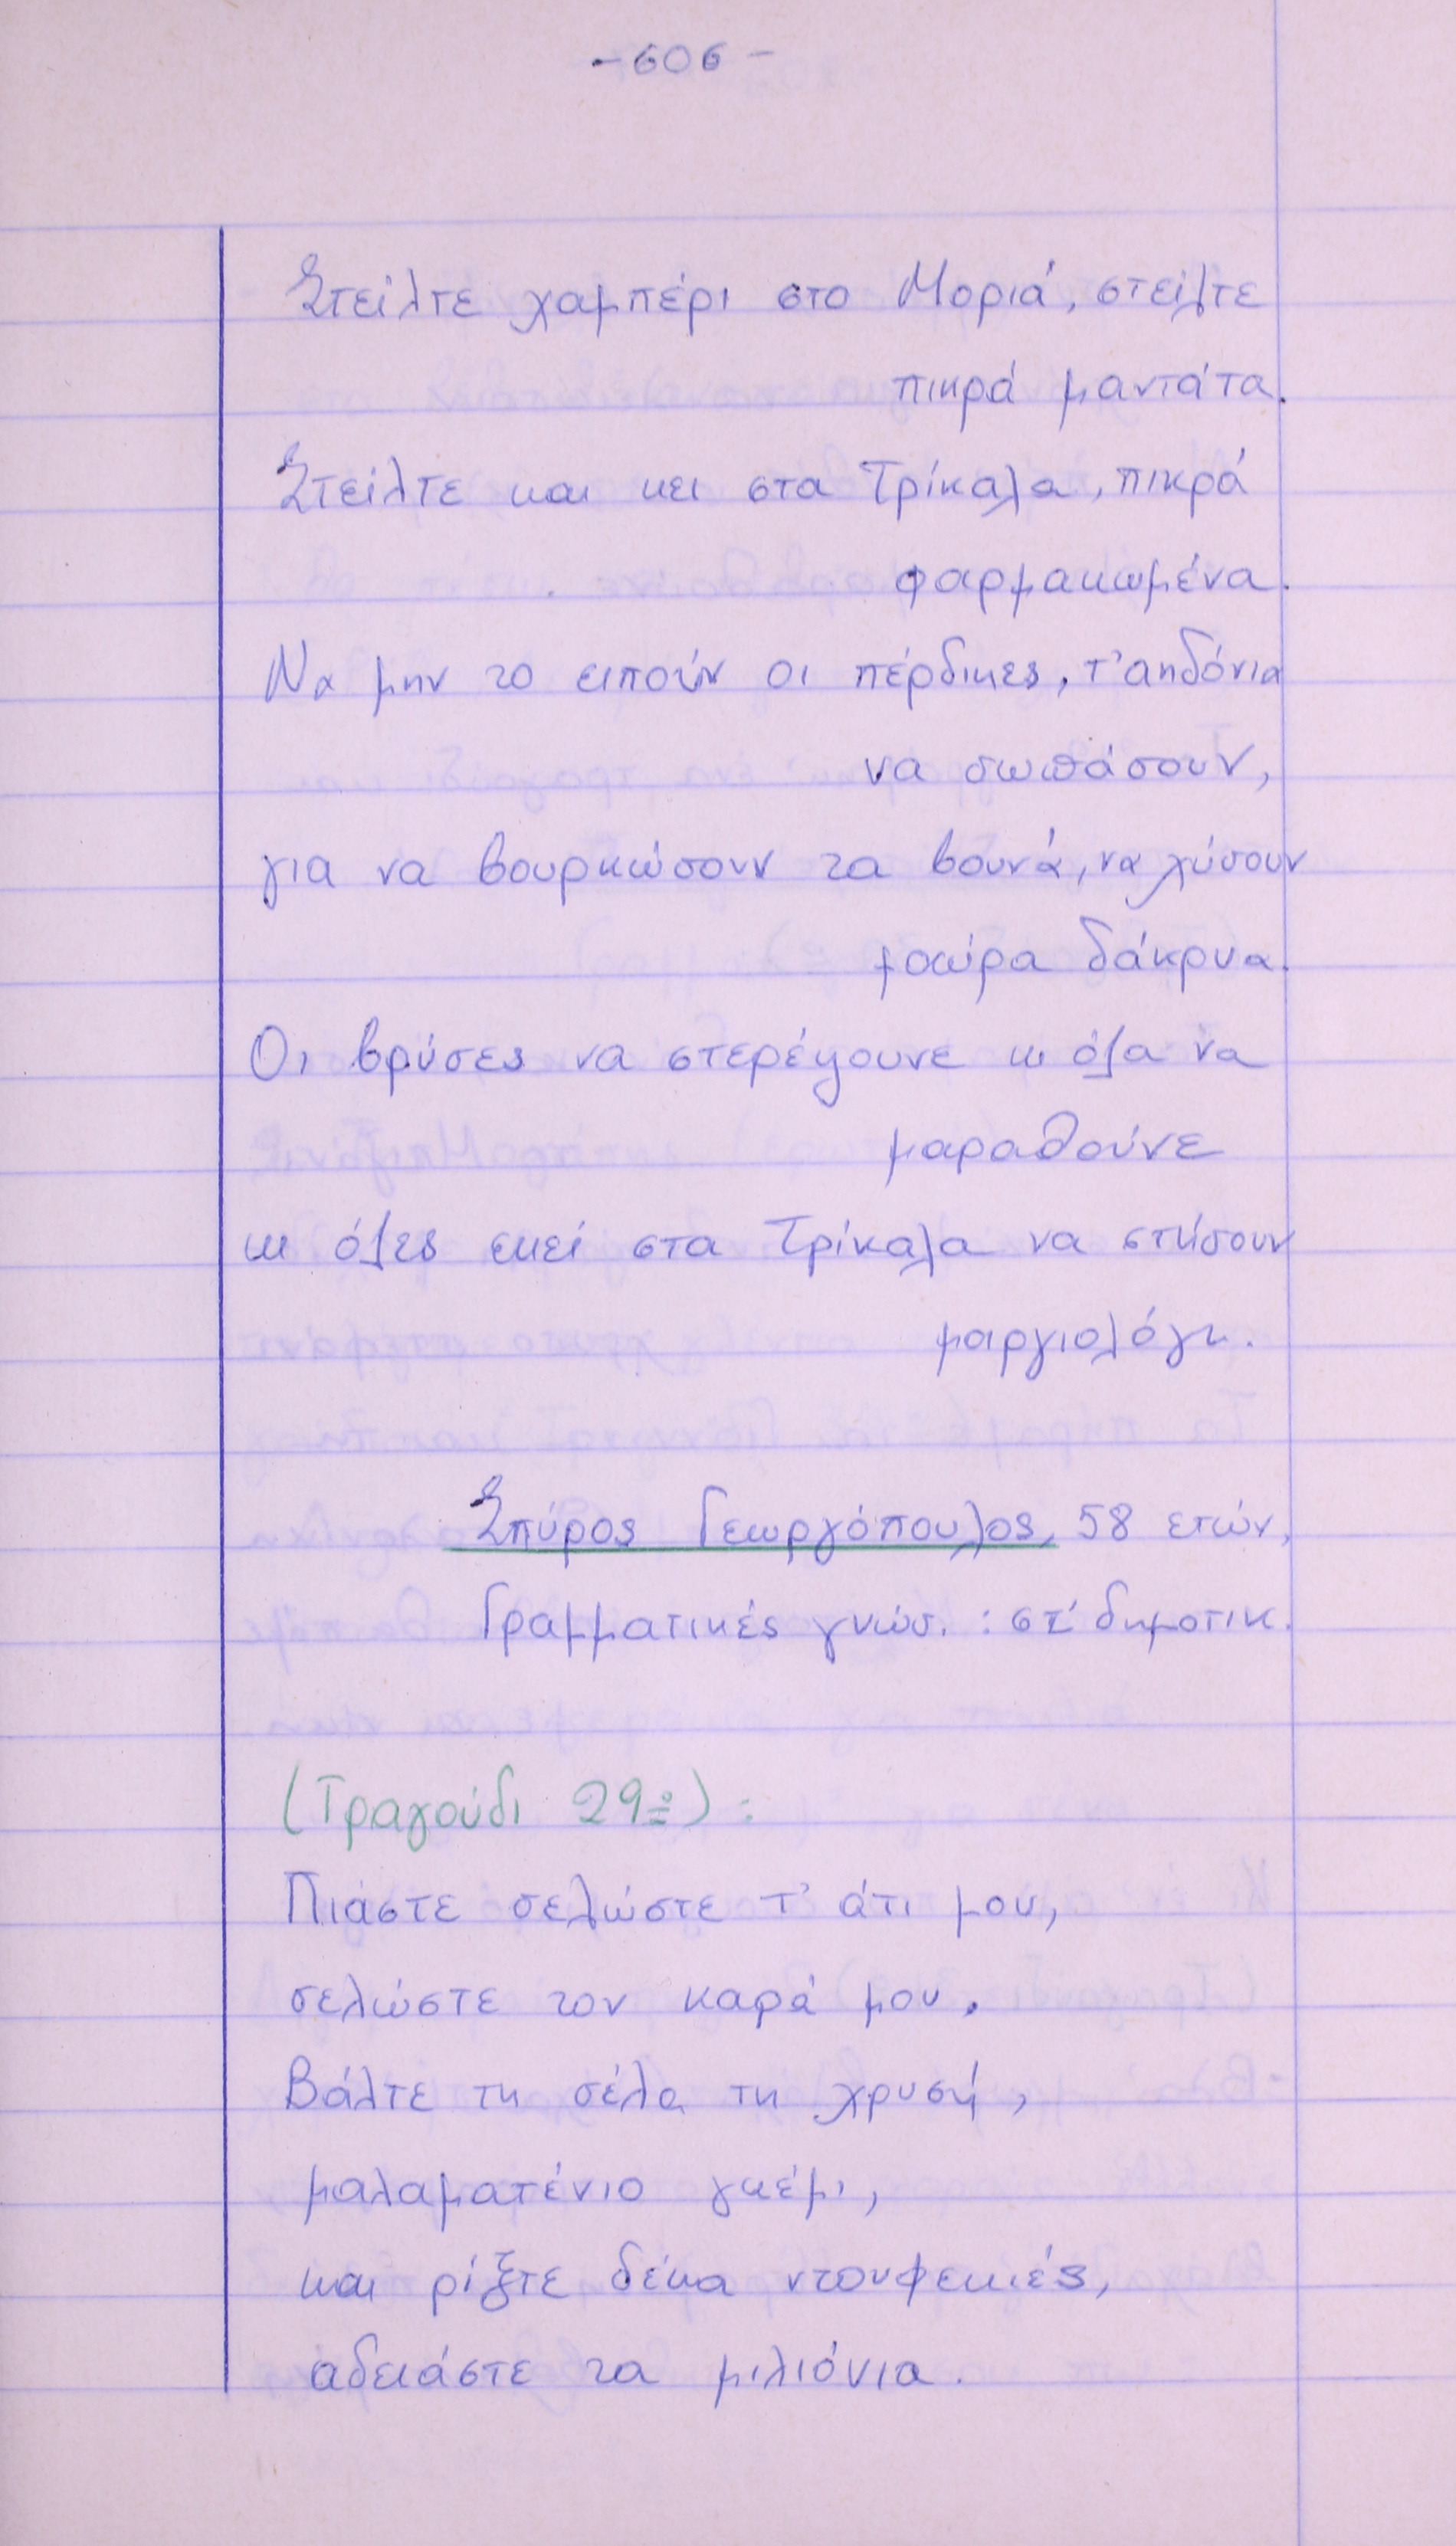 -606-
Στείλτε χαμπέρι στο Μοριά, στείλτε
πικρά μαντάτα.
Στείλτε και κει στα Τρίκαλα, πικρά
φαρμακωμένα.
Να μην το ειπούν οι πέρδικες, τ' αηδόνια
να σωπάσουν,
για να βουρκώσουν τα βουνά, να χύσουν
μαύρα δάκρυα.
Οι βρύσες να στερέψουνε κι όλα να
μαραθούνε
κι όλες εκεί στα Τρίκαλα να στήσουν
μοιργιολόγι.
Σπύρος Γεωργόπουλος, 58 ετών,
Γραμματικές γνώσ. : στ' δημοτικ.
(Τραγούδι 29ο) :
Πιάστε σελώστε τ' άτι μου,
σελώστε τον καρά μου.
Βάλτε τη σέλα τη χρυσή,
μαλαματένιο γκέμι,
και ρίξτε δέκα ντουφεκιές,
αδειάστε τα μιλιόνια.